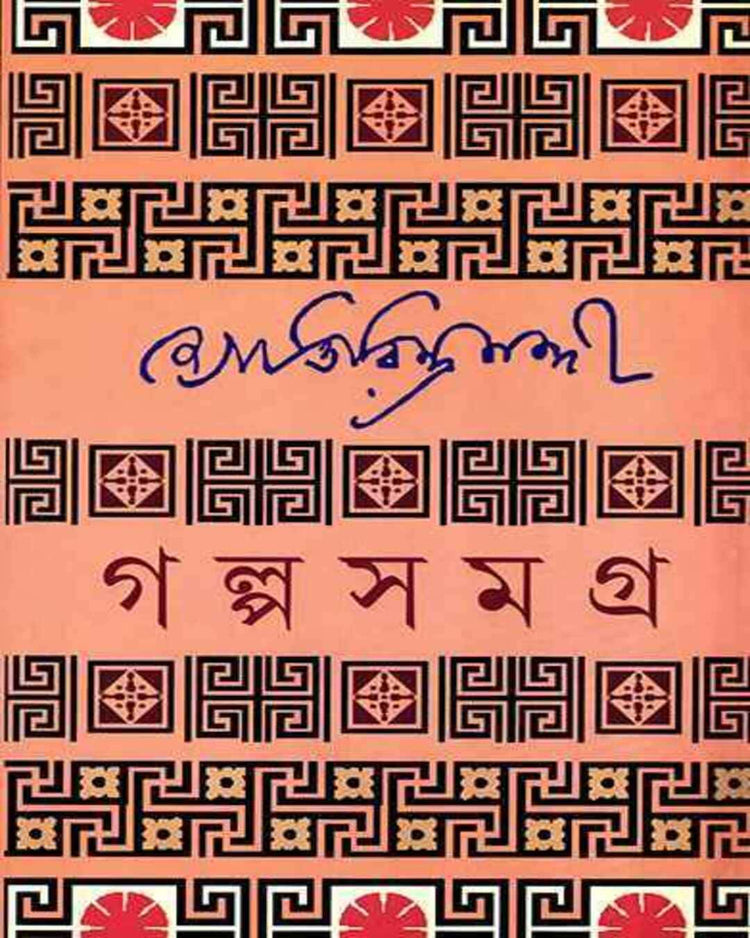 জ্যোতিরিন্দ্র নন্দী
গল্পসমগ্র